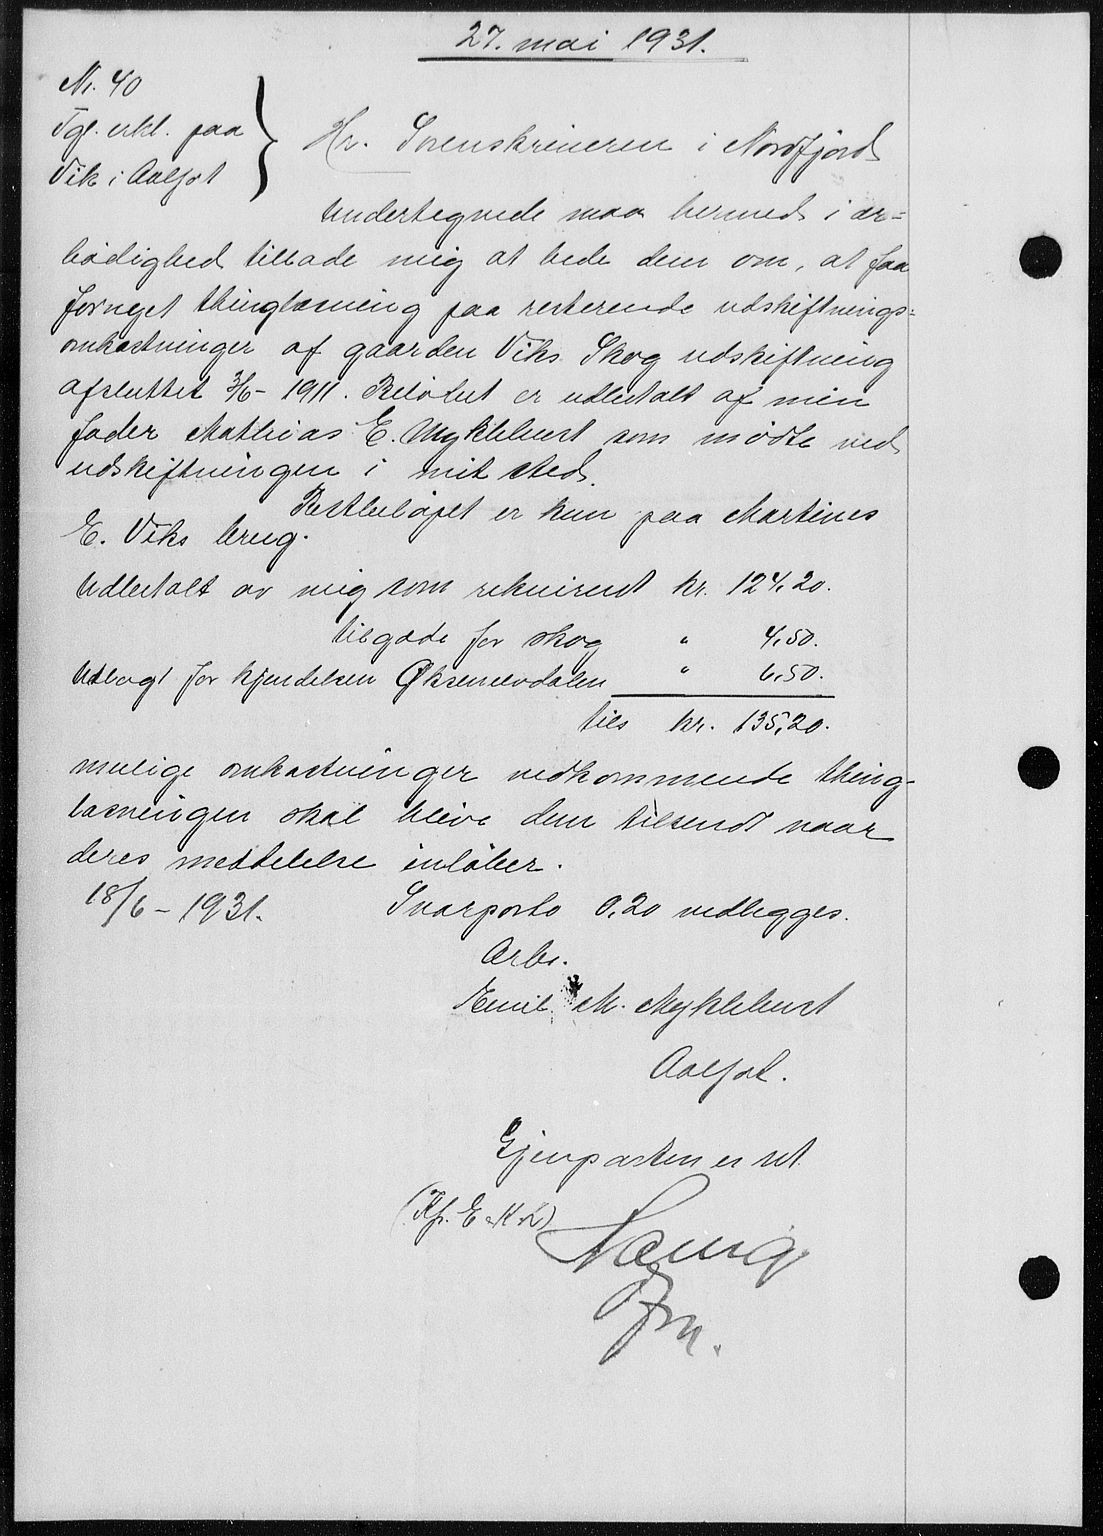 27. mai 1931.
Nr. 40
Tgl. erkl. paa
Vik i Aalfot
Hr. Sorenskriveren i Nordfjord
Undertegnede maa herved i ær=
bødighed tillade mig at bede dem om, at faa
fornyet thinglæsning paa resterende udskiftnings=
omkostninger af gaarden Viks Skog udskiftning
afsluttet 3/6 - 1911. Beløbet er udbetalt af min
fader Mathias E. Myklebust som mødte ved
udskiftningen i mit sted.
Restbeløpet er kun paa Martines
E. Viks brug.
Udbetalt av mig som rekvirent kr. 124,20.
tilgode for skog " 4,50.
Udlagt for kjendelsen Øksenelvdalen " 6,50.
tils kr. 135,20.
mulige omkostninger vedkommende thing-
læsningen skal blive dem tilsendt naar
deres meddelelse inløber.
18/6 - 1931. Svarporto 0,20 vedlegges.
Ærb.
Emil M. Myklebust
Aalfot.
Gjenparten er ret